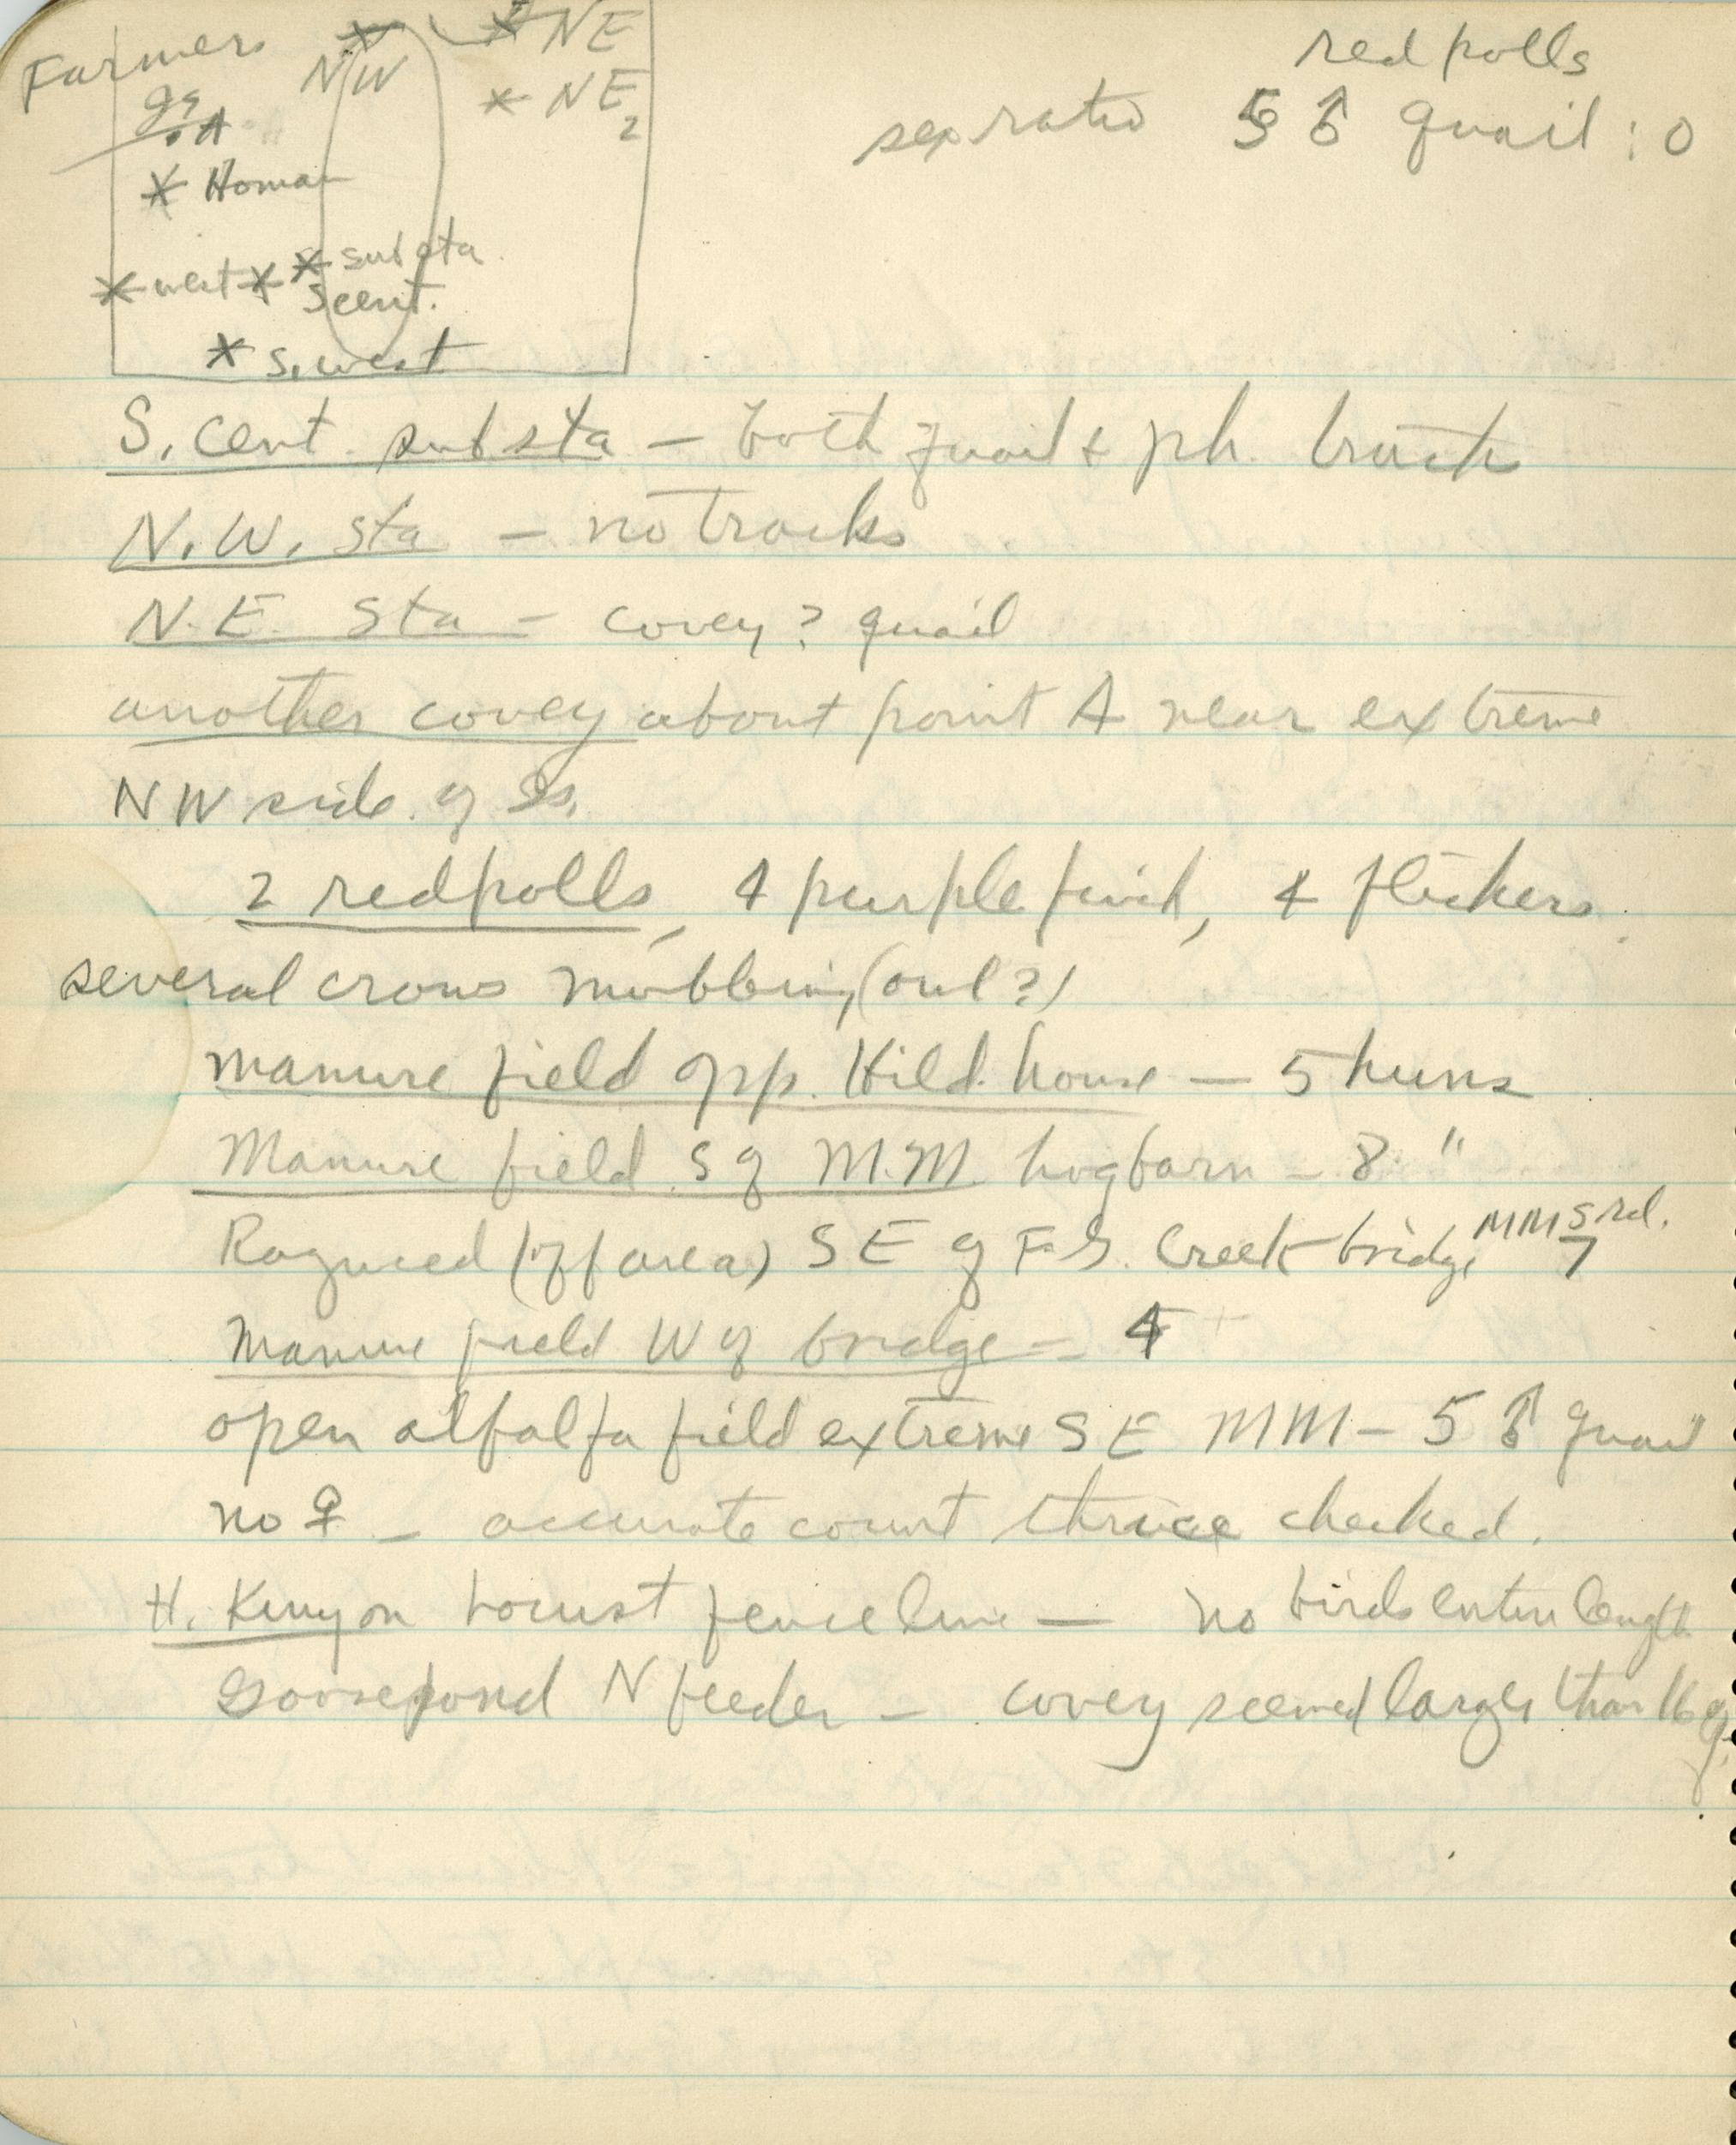 redpolls
sex ratio 5 ♂ quail : 0
Farmers NW * NE
* NE2
A
* Homan
* west * * substa
S cent.
* S. west
S. Cent. substa — both quail & ph. tracks
N.W. sta — no tracks
N.E. Sta — covey? quail
another covey about point A near extreme
NW side of Is.
2 redpolls, 4 purple finch, 4 flickers
several crows mobbing (owl?)
manure field opp. Hild. house — 5 huns
Manure field S of M.M. hogbarn — 8 "
MM S rd.
Ragweed (off area) SE of F.S. Creek bridge 7
Manure field W of bridge — 4
open alfalfa field extreme SE MM — 5 ♂ quail
no ♀ — accurate count thrice checked.
H. Kenyon locust fence line — no birds entire length
Goosepond N feeder — covey seemed larger than 16 q.